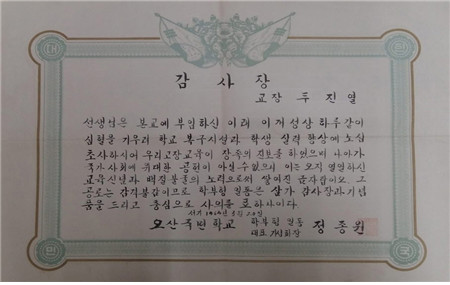 대 한
감사장
교장 두진열
선생님은 본교에 부임하신 이래 이개성상 하루같이
심혈을 기우려 학교 복구시설과 학생 실력 향상에 노심
초사하시어 우리고장교육이 장족의 진보를 하였으며 나아가
국가사회에 위대한 공헌이 아닐수없으며 이는 오직 영명하신
교육신념과 백절불굴의 노력으로써 살아진 순자감이오 그
공로는 감격불감이므로 학부형 일동은 삼가 감사장과 기념
품을 드리고 충심으로 사의를 표하나이다
서기 19 년 월 20일
오산국민학교 학부형 일동
대표 기성회장 정종원
민 국